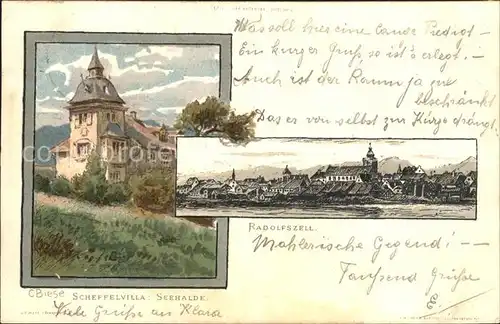 Was soll hier eine lange Predigt -
Ein kurzer Gruß, so ist's erlegt. -
Auch ist der Raum ja so
beschränkt
Das er von selbst zur Kürze drängt
RADOLFSZELL.
Mahlerische Gegend! -
Tausend Grüße
C Biese
SCHEFFELVILLA: SEEHALDE.
Viele Grüße an Klara